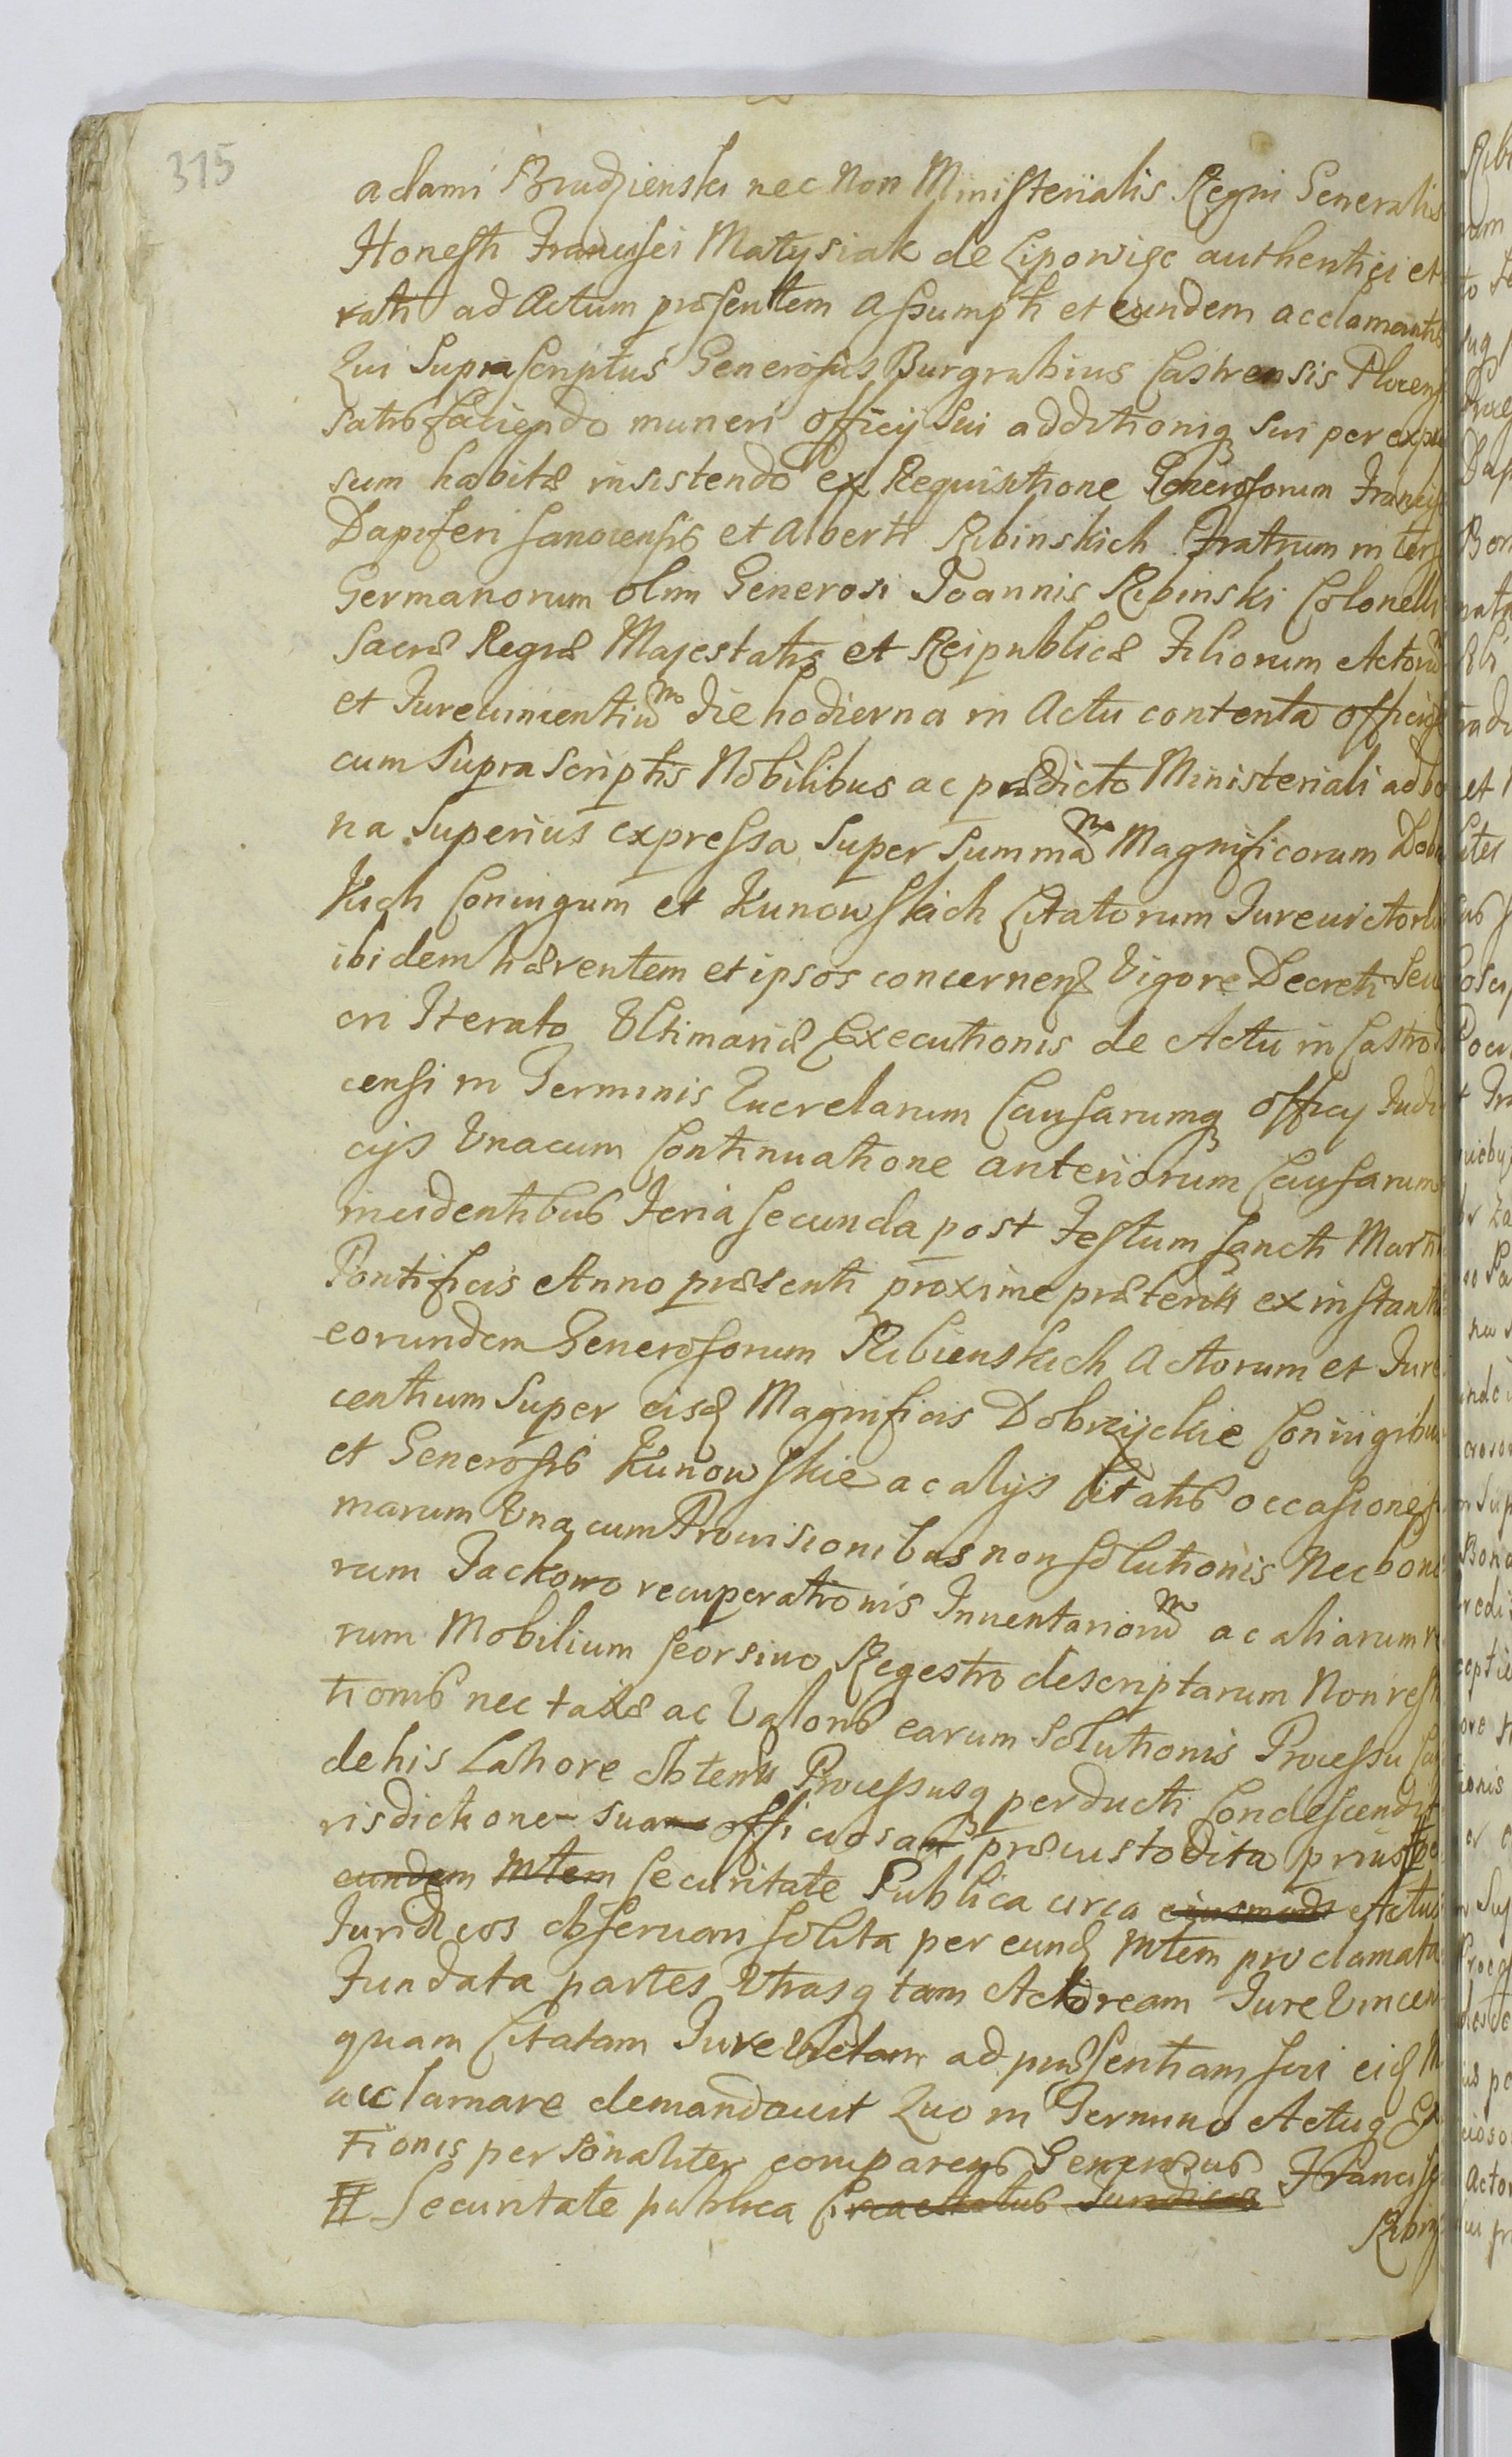 315
adami Brudzienski nec non Ministerialis Regni Generalis
Honesti Francisci Matysiak de Lipowiec authentici et
rati ad Actum præsentem assumpti et eundem acclamantis
Qui Supra scriptus Generosus Burgrabius Castrensis Plocens
Satisfaciendo muneri officij Sui additioniq Sui per expre
sum habitæ insistendo ex Requisitione Generosorum Francis
Dapiferi Sanocensis et Alberti Ribinskich Fratrum inter
Germanorum olim Generosi Joannis Ribinski Colonelli
Sacræ Regiæ Majestatis et Reipublicæ Filiorum Actorum
et Jurevincentium die hodierna in Actu contenta officiose
cum Supra Scriptis Nobilibus ac prædicto Ministeriali ad bo
na Superius expressa Super Summam Magnificorum Dobr
kich Coniugum et Kunowskich Citatorum Jurevictorum
ibidem hærentem et ipsos concernen Vigore Decreti Seu
ori Iterato Ultimariæ Executionis de Actu in Castro
censi in Terminis Querelarum Causarumq officij Judi
cijs Unacum Continuatione anteriorum Causarum
incidentibus Feria Secunda post Festum Sancti Marti
Pontificis Anno præsenti proxime præterit ex instanti
eorundem Generosorum Ribienskich Actorum et Jure
centium Super eisd Magnificis Dobrzyckie Coniugibus
et Generosis Kunowskie ac alijs Citatis occasione
marum Una cum Provisionibus non Solutionis Nec bono
rum Jackowo recuperationis Inventariorum ac aliarum re
rum Mobilium Seorsivo Regestro descriptarum Non resti
tionis nec taxæ ac Valoris earum Solutionis Processu
de his Latiore obtent Processusq perducti Condescendit
risdictione Sua officiosa præcustodita prius
eundem Mtem Securitate Publica circa ejusmodi Actus
Juridicos observari Solita per eund Mtem proclamata
Fundata partes Utrasq tam Actoream Jure Vincen
quam Citatam Jure Victam ad præsentiam Sui eid
acclamare demandavit Quo in Termino Actuq
tionis personaliter comparens Generosus Francis
Securitate publica Circa Actus Juridicos
Ribins